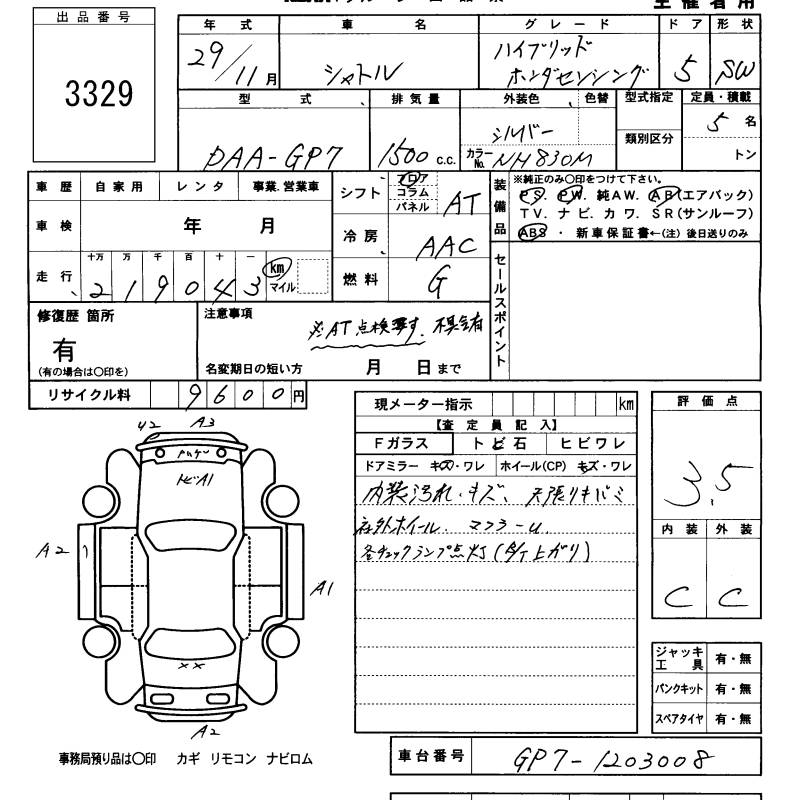 出品番号
3329
年式 車名 グレード ドア 形状
29/11月 シャトル ハイブリッド ホンダセンシング 5 SW
型式 排気量 外装色 色替 型式指定 定員・積載
DAA-GP7 1500 c.c. シルバー カラーNo. NH830M 類別区分 5名 トン
車歴 自家用 レンタ 事業.営業車
車検 年 月
走行 十万 万 千 百 十 一 km マイル
219043
シフト フロア コラム パネル AT
冷房 AAC
燃料 G
装備品
※純正のみ〇印をつけて下さい。
PS. PW. 純AW. AB(エアバック)
TV. ナビ. カワ. SR(サンルーフ)
ABS ・ 新車保証書←(注) 後日送りのみ
セールスポイント
修復歴 箇所
有
(有の場合は〇印を)
注意事項
※AT点検要す. 不具合有
名変期日の短い方 月 日まで
リサイクル料 9600円
現メーター指示 km
【査定員記入】
Fガラス トビ石 ヒビワレ
ドアミラー キズ・ワレ ホイール(CP) キズ・ワレ
内装汚れ・キズ、天張リキバミ
社外ホイール. マフラ-u.
各チェックランプ点灯( 上がり)
評価点
3.5
内装 外装
C C
ジャッキ工具 有・無
パンクキット 有・無
スペアタイヤ 有・無
Y2 A3
トビA1
A2
A1
××
A2
事務局預り品は〇印 カギ リモコン ナビロム
車台番号 GP7-1203008